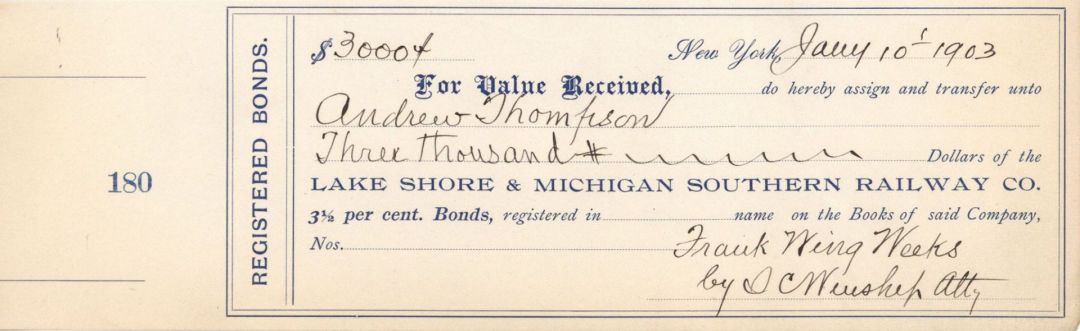 180
REGISTERED BONDS.
$3000 New York, Jany 10' 1903
For Value Received, do hereby assign and transfer unto
Andrew Thompson
Three thousand Dollars of the
LAKE SHORE & MICHIGAN SOUTHERN RAILWAY CO.
3½ per cent. Bonds, registered in name on the Books of said Company,
Nos. Frank Wing Weeks
by S C Winship Atty